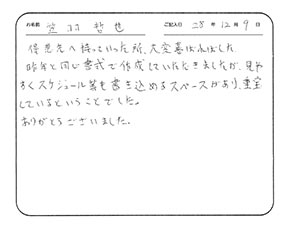 お名前 笠羽 哲也 ご記入日 28年12月9日
得意先へ持っていった所、大変喜ばれました。
昨年と同じ書式で作成していただきましたが、見や
すくスケジュール等も書き込めるスペースがあり、重宝
しているということでした。
ありがとうございました。